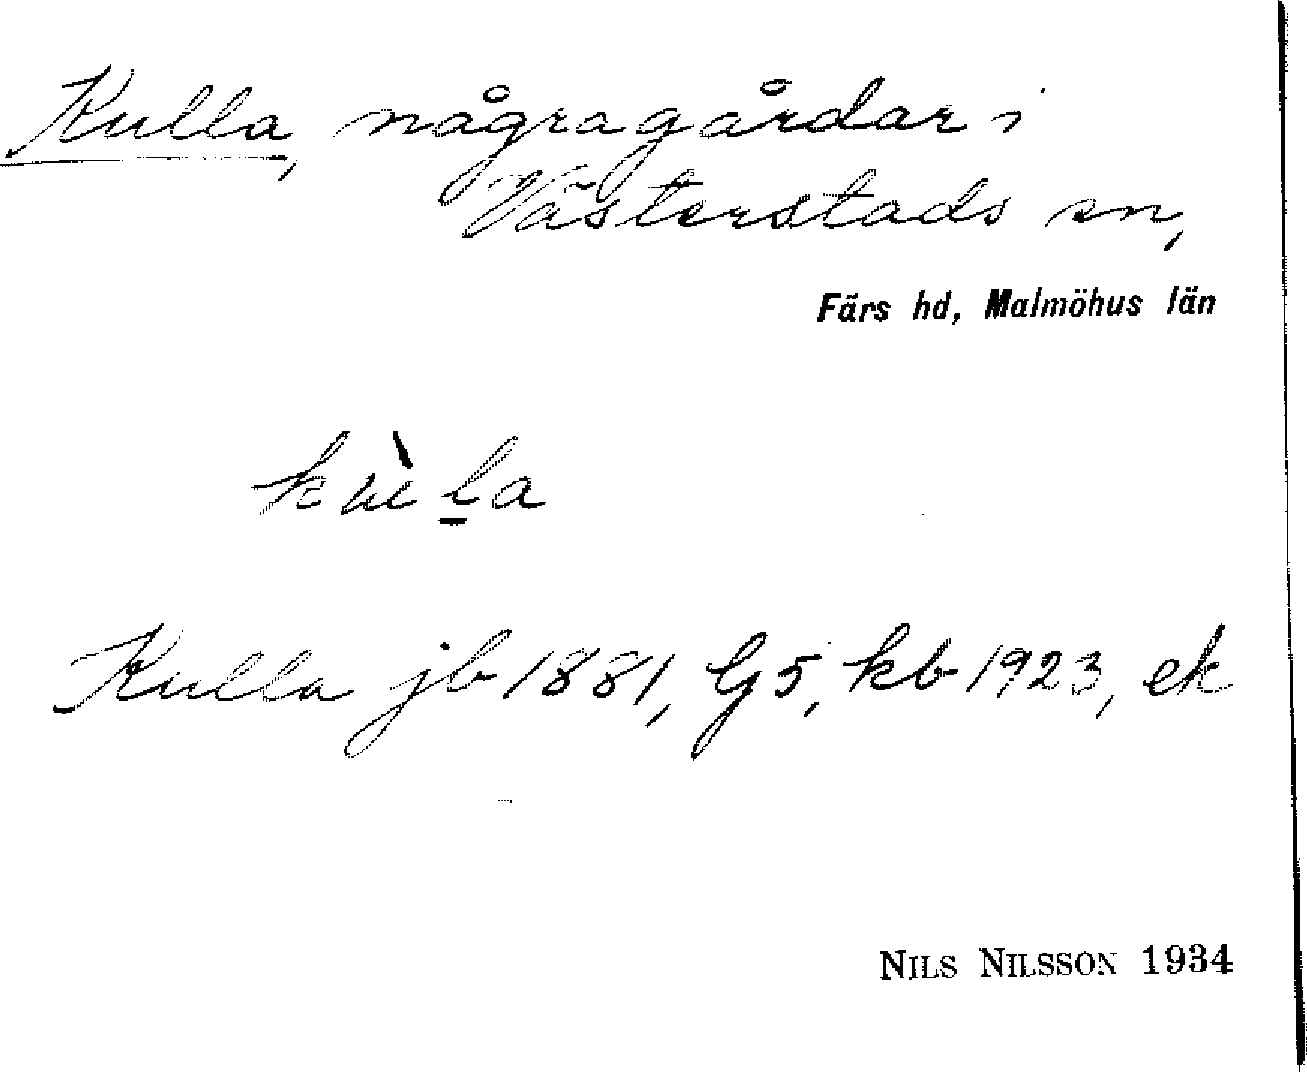 Kulla, några gårdar i
Västerstads sn,
Färs hd, Malmöhus län
kùl̠a
Kulla jb 1881, G5, kb 1923, ek
NILS NILSSON 1934